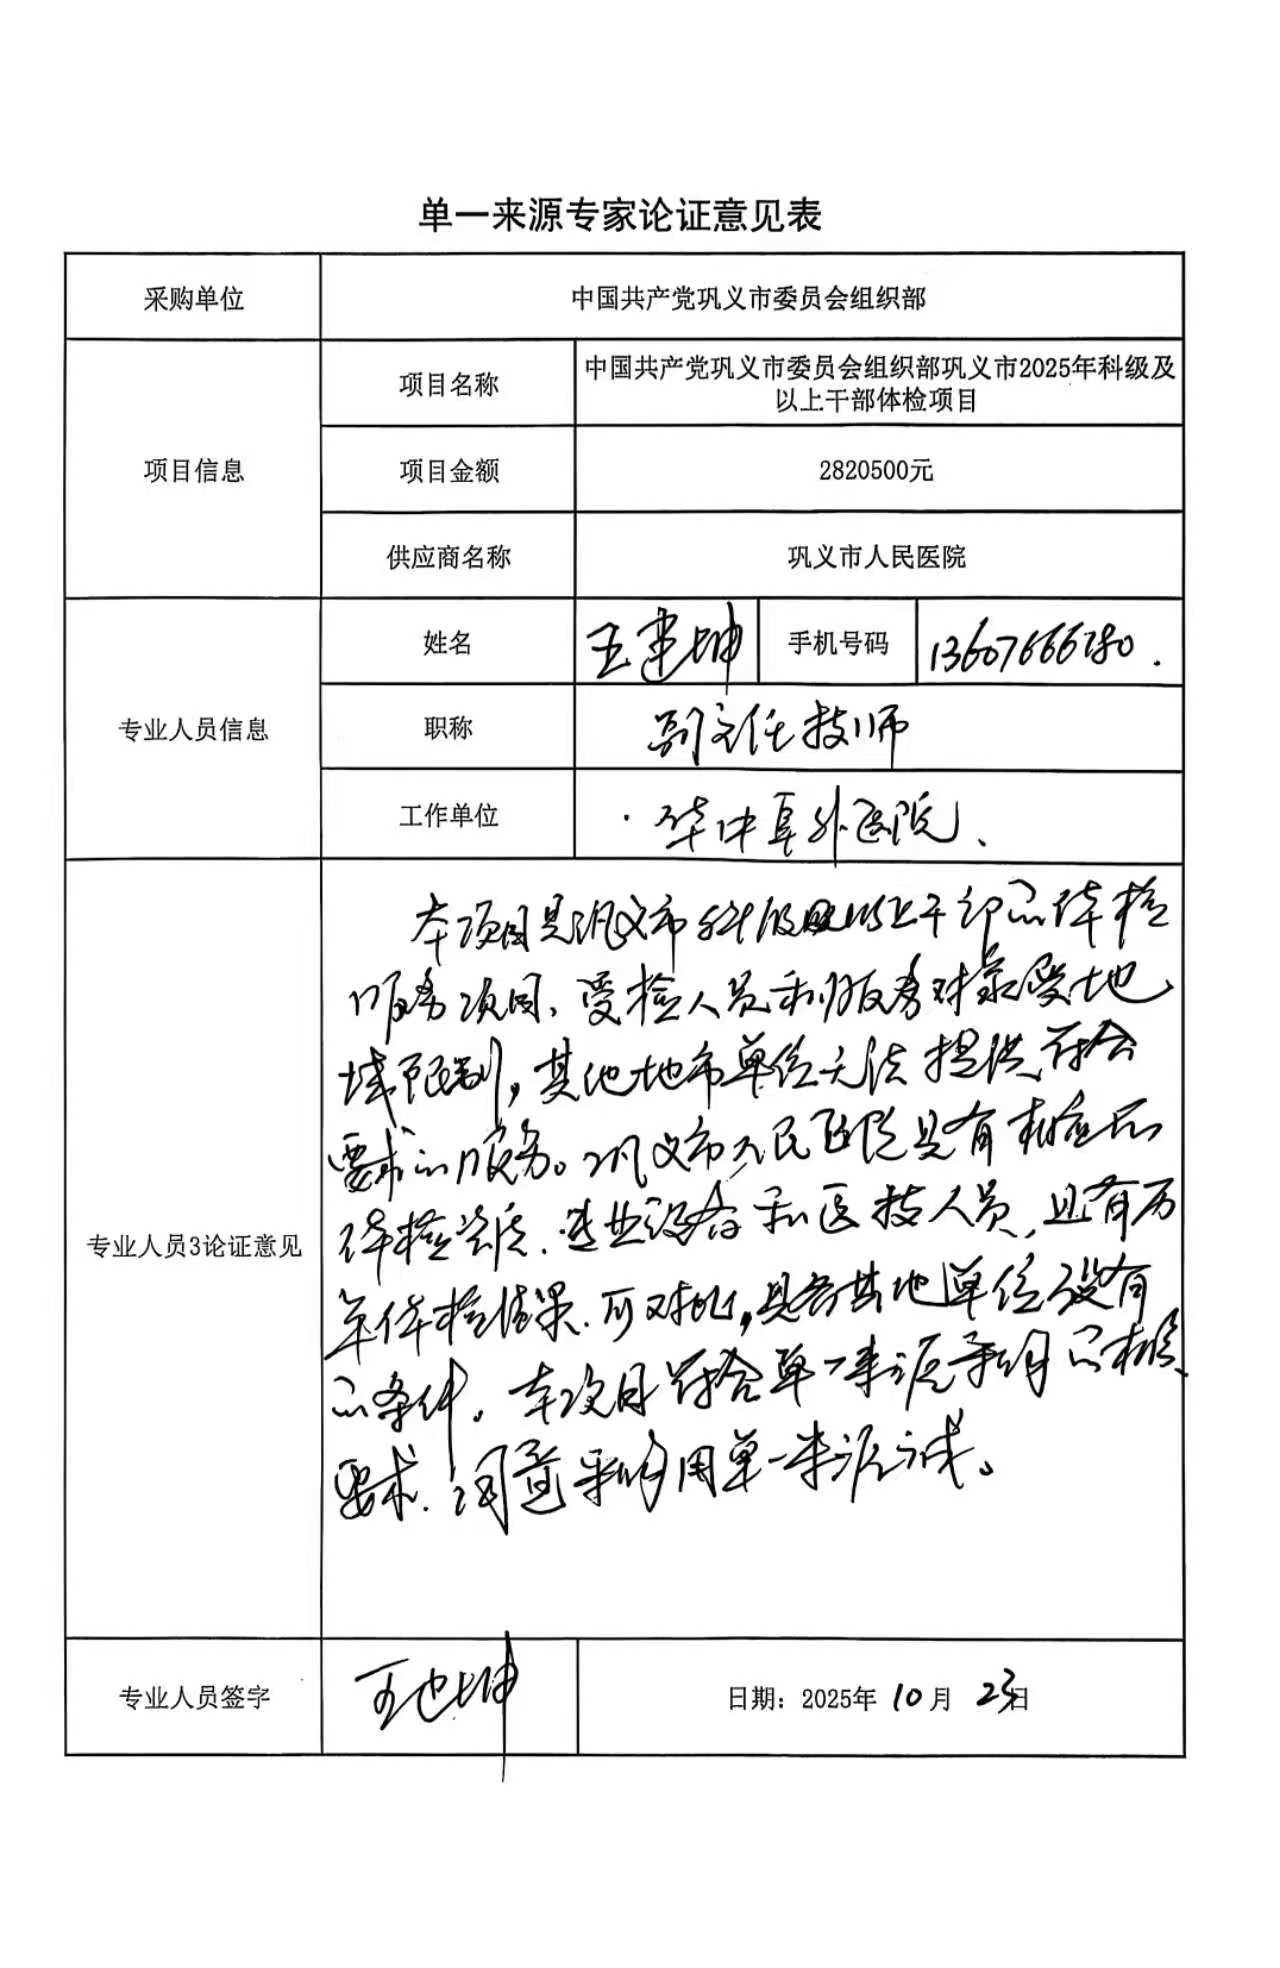 单一来源专家论证意见表
采购单位
中国共产党巩义市委员会组织部
项目信息
项目名称
中国共产党巩义市委员会组织部巩义市2025年科级及
以上干部体检项目
项目金额
2820500元
供应商名称
巩义市人民医院
专业人员信息
姓名
王建坤
手机号码
职称
副主任技师
工作单位
华中阜外医院、
专业人员3论证意见
本项目是巩义市科级及以上干部的体检
服务项目、受检人员和服务对象受地
域限制,其他地市单位无法提供符合
要求的服务。巩义市人民医院具有相应的
体检资质、专业设备和医技人员,且有历
年体检结果、可对比,具备其他单位没有
的条件。本项目符合单一来源采购的相关
要求、同意采购用单一来源方式。
专业人员签字
王建坤
日期:2025年10月23日